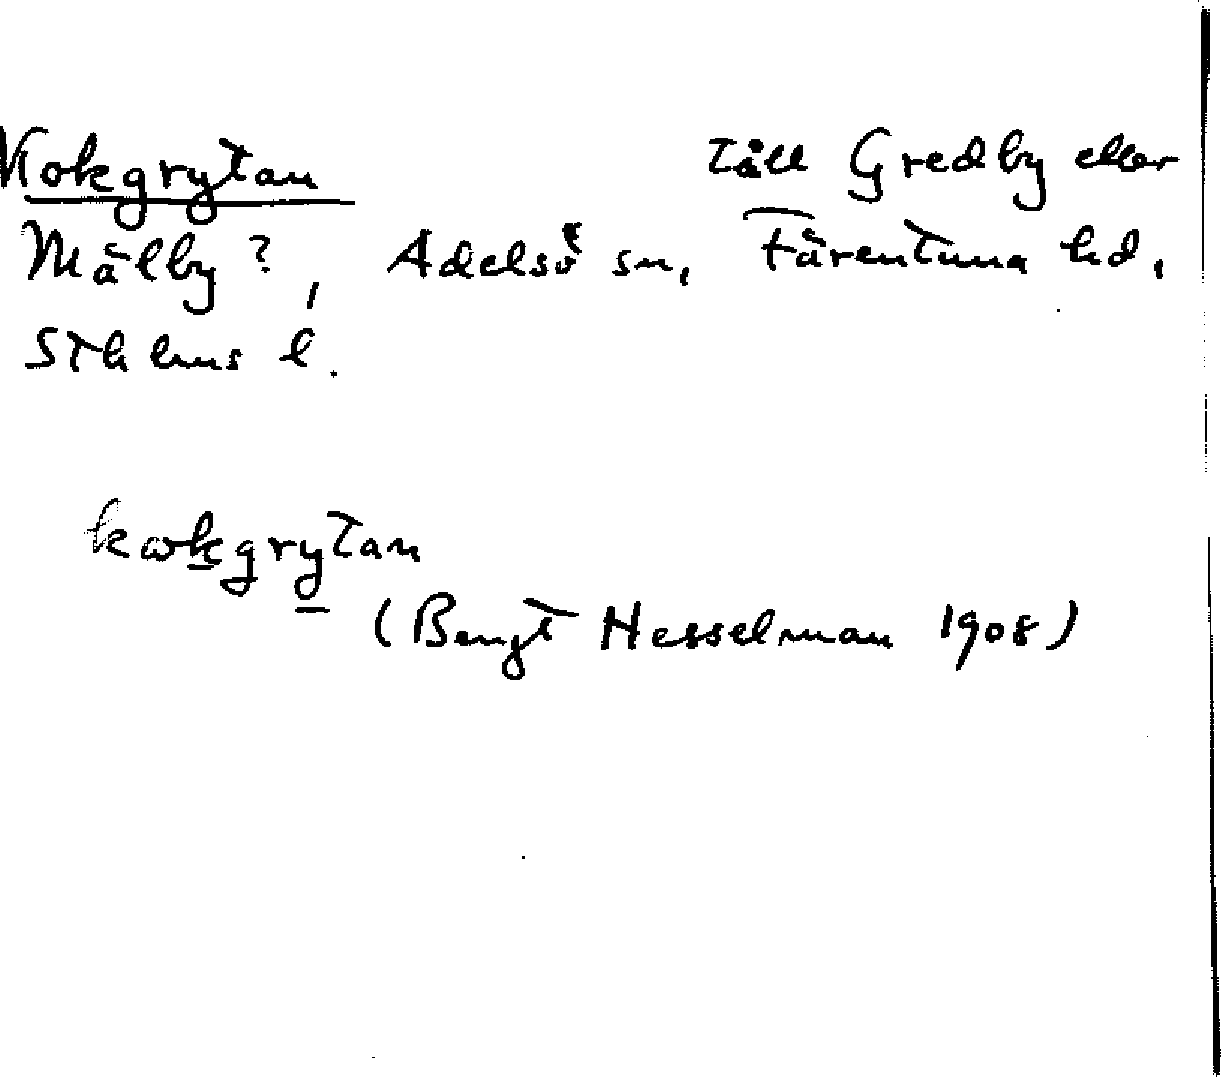 Kokgrytan Gredby eller
Målby?, Adelsö sn, Färentuna hd,
Sthlms l.
kωkgrytan
(Bengt Hesselman 1908)